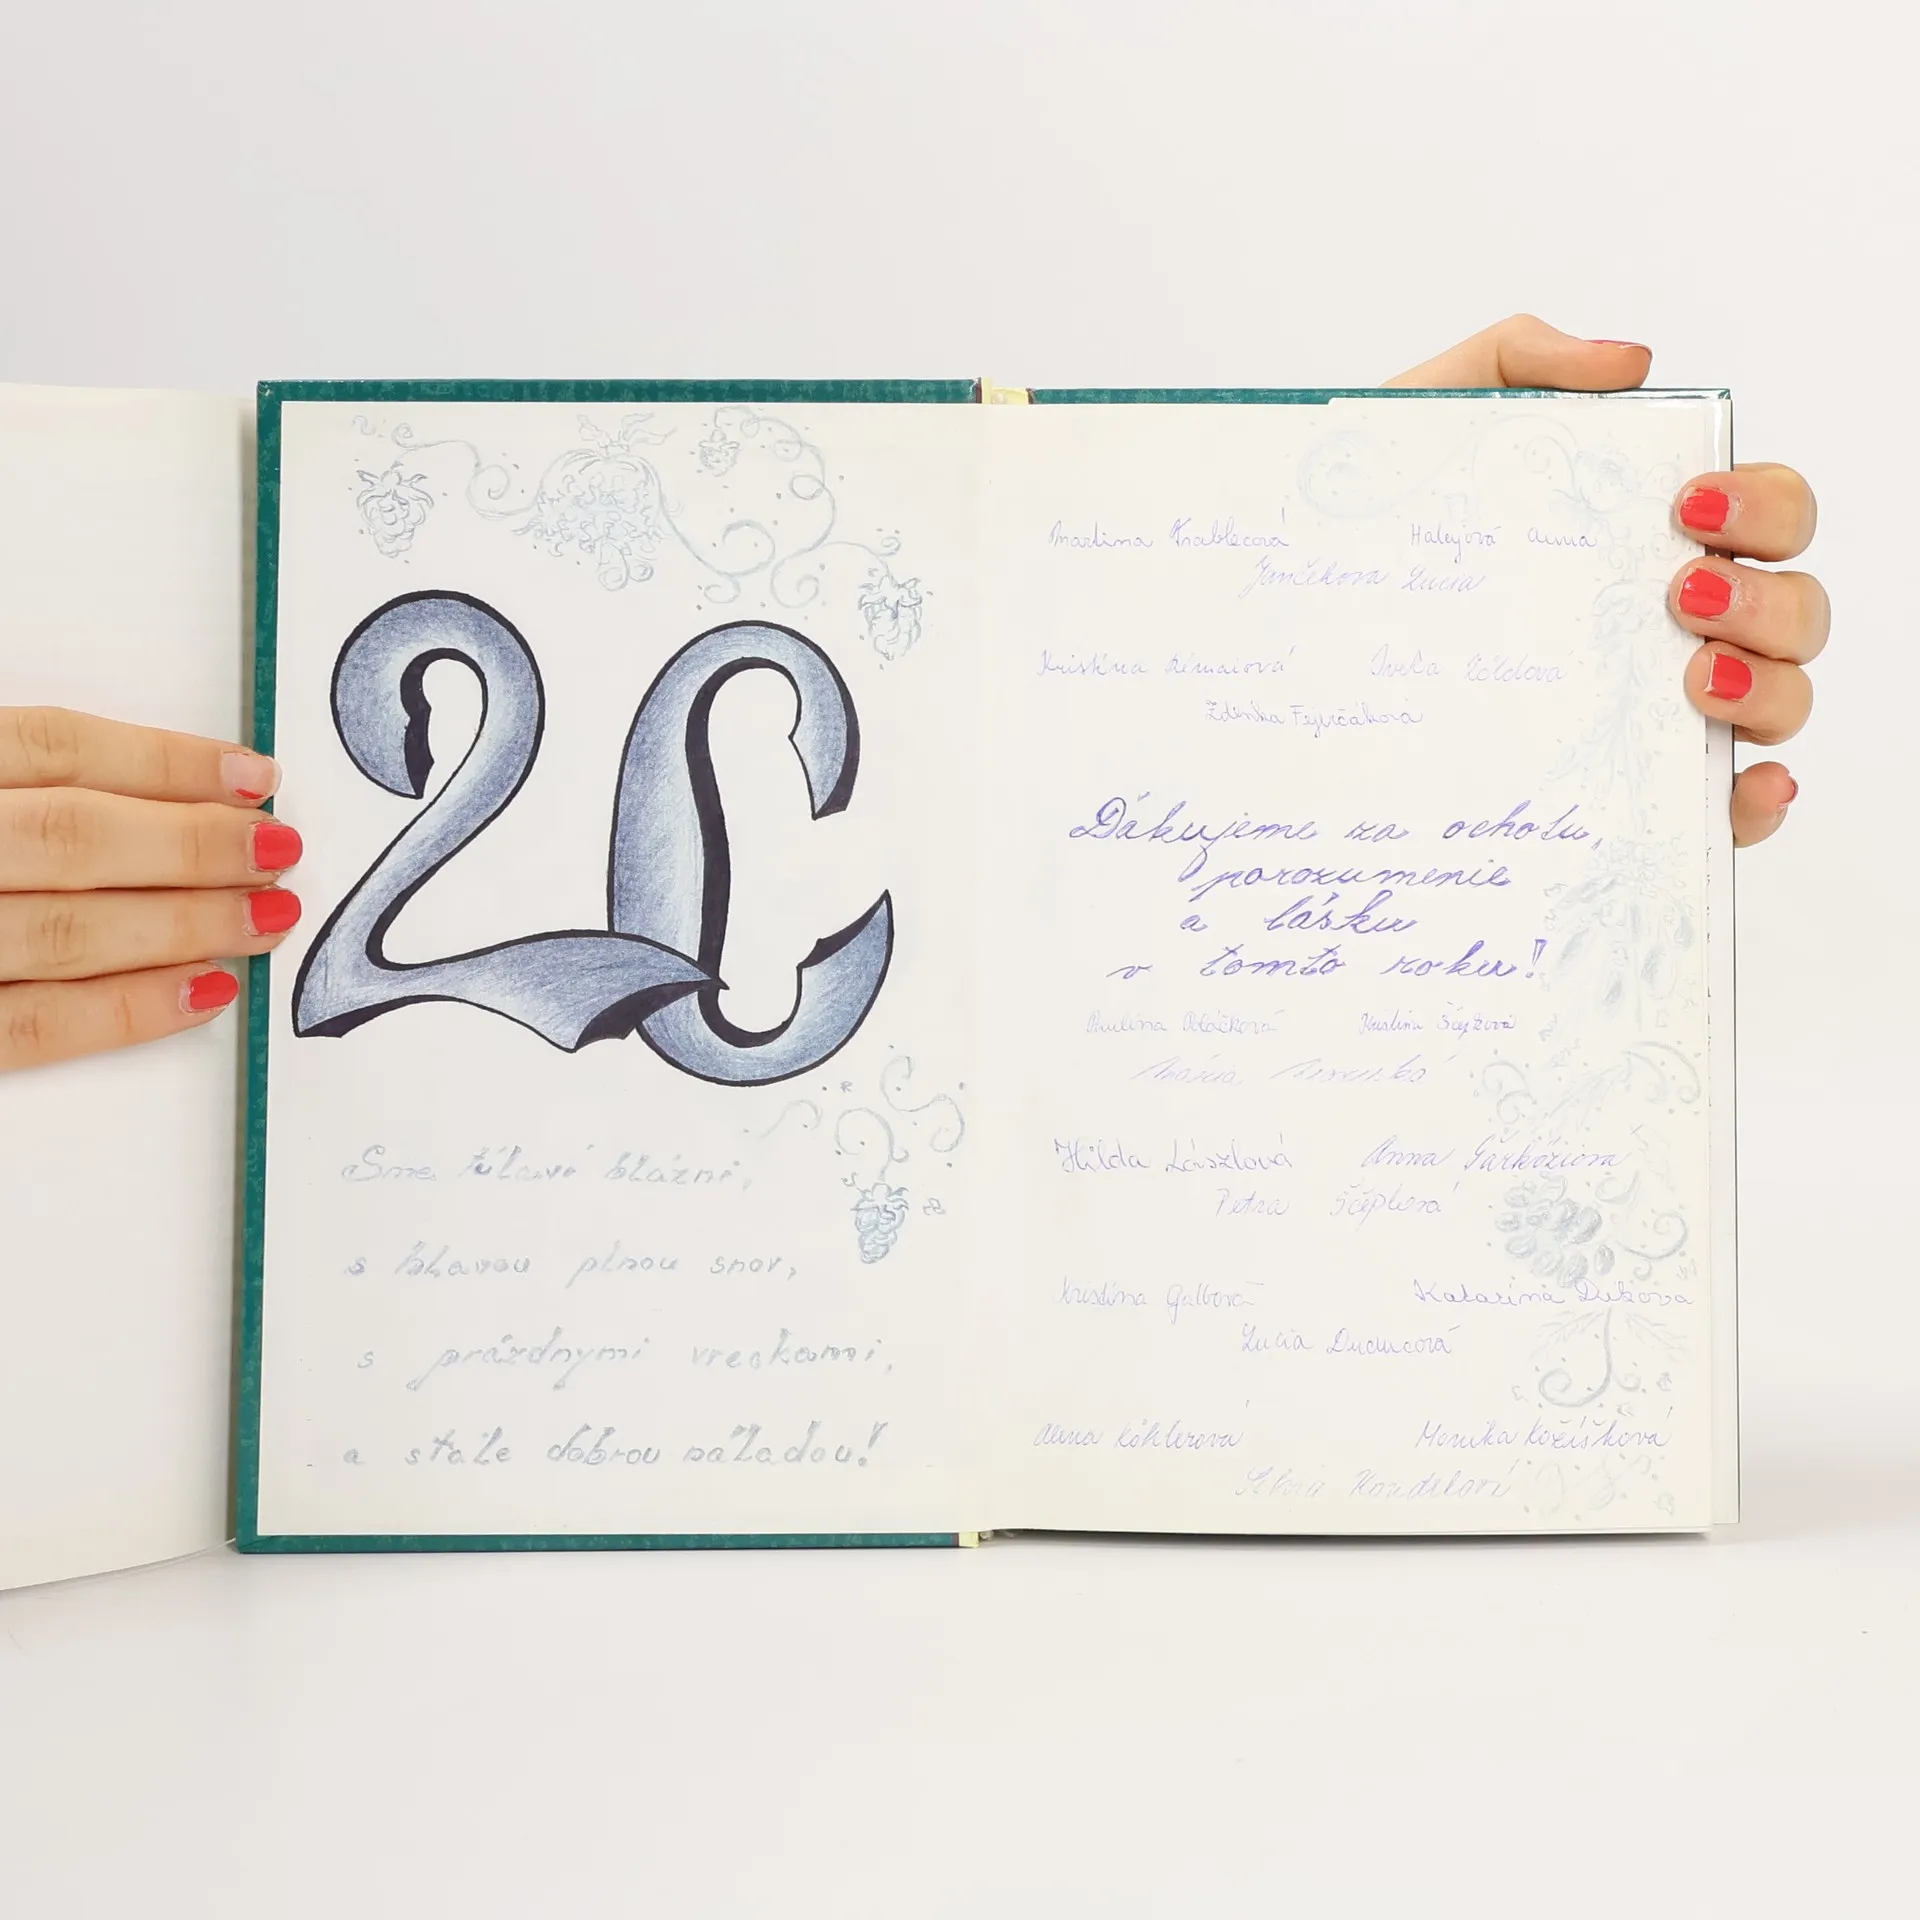 2C
Sme túlaví blázni,
s hlavou plnou snov,
s prázdnymi vreckami,
a stále dobrou náladou!
Martina Hrablecová Halejová Anna
Jančekova Lucia
Kristína Iveta Zöldová
Zdenka Fejerčáková
Ďakujeme za ochotu,
porozumenie
a lásku
v tomto roku!
Paulína Poláčková Kristína
Mária
Hilda Lászlová Anna Šarköziová
Petra Ščepková
Kristína Galbová Katarína Dukova
Lucia Duducová
Anna Köhlerová Monika Kožíšková
Silvia